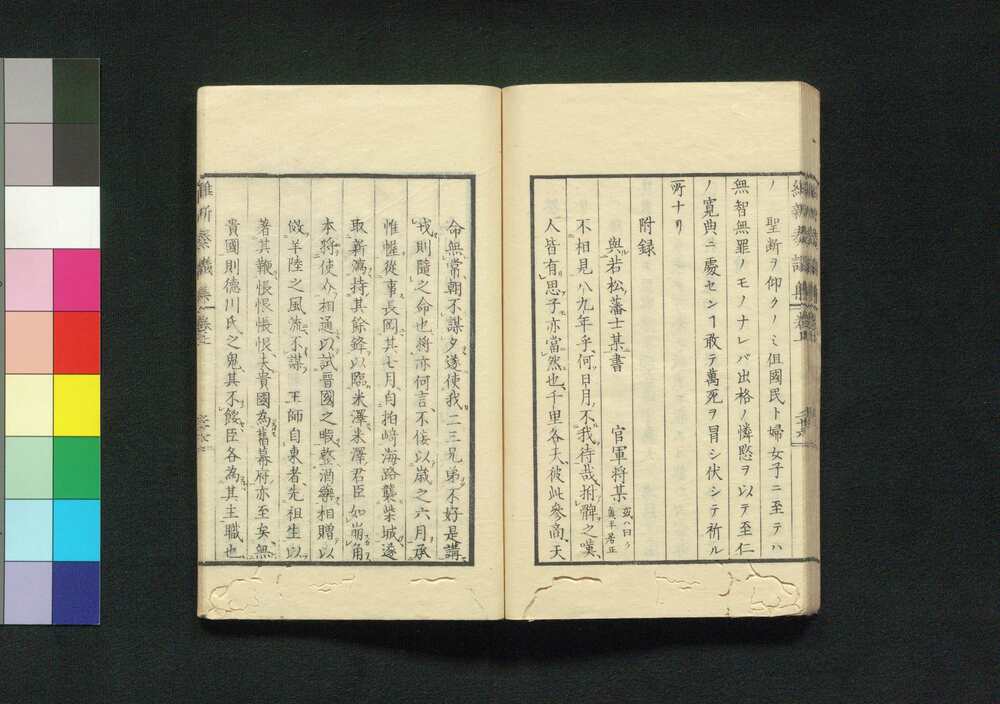 ノ 聖斷ヲ仰クノミ但國民ト婦女子ニ至テハ
無智無罪ノモノナレバ出格ノ憐愍ヲ以テ至仁
ノ寛典ニ處センヿ敢テ萬死ヲ冒シ伏シテ祈ル
所ナリ
附録
與若松藩士某書 官軍将某
不相見八九年乎何日月不我待哉拊髀之嘆
人皆有思子亦當然也千里各天彼此參商天
命無常朝不謀夕遂使我二三兄弟不好是講
戎則隨之命也将亦何言不佞以歳之六月承
惟幄從事長岡其七月自拍崎海路襲柴城遂
取新瀉持其餘鋒以臨米澤米澤君臣如崩角
本将使介相通以試晋國之暇整酒樂相贈以
傚羊陸之風流不謀 王師自東者先祖生以
著其鞭悵恨悵恨夫貴國為舊幕府亦至矣無
貴國則德川氏之鬼其不餒臣各為其主職也